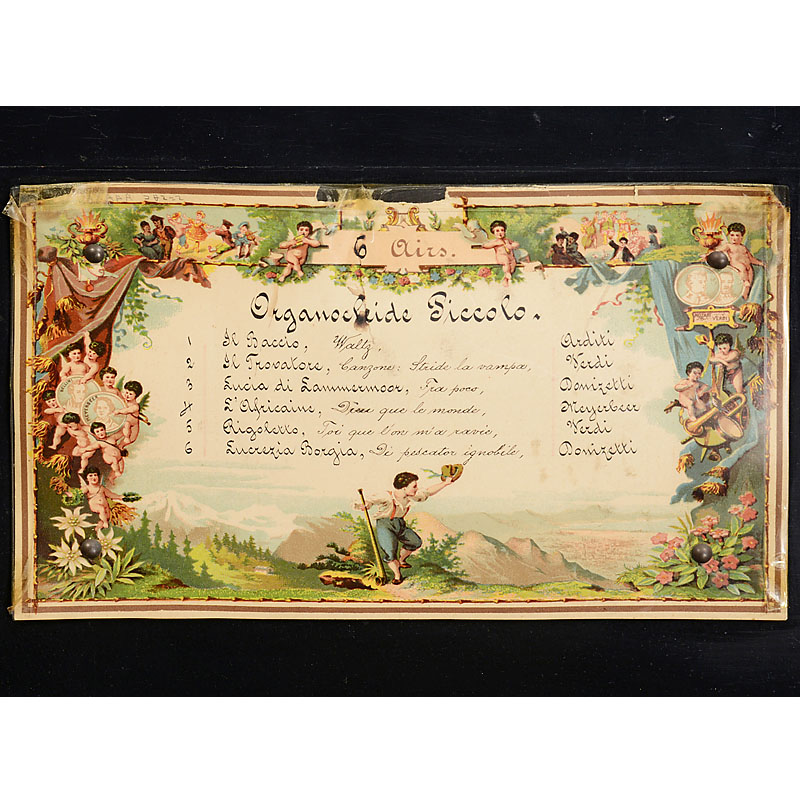 6 Airs.
Organocleide Piccolo.
1 Il Baccio, Waltz, Arditi
2 Il Trovatore, Canzone: Stride la vampa, Verdi
3 Lucia di Lammermoor, Fra poco, Donizetti
4 L'Africaine, Dieu que le monde, Meyerbeer
5 Rigoletto, Toi que l'on m'a ravie, Verdi
6 Lucrezia Borgia, Di pescator ignobile, Donizetti
VERDI